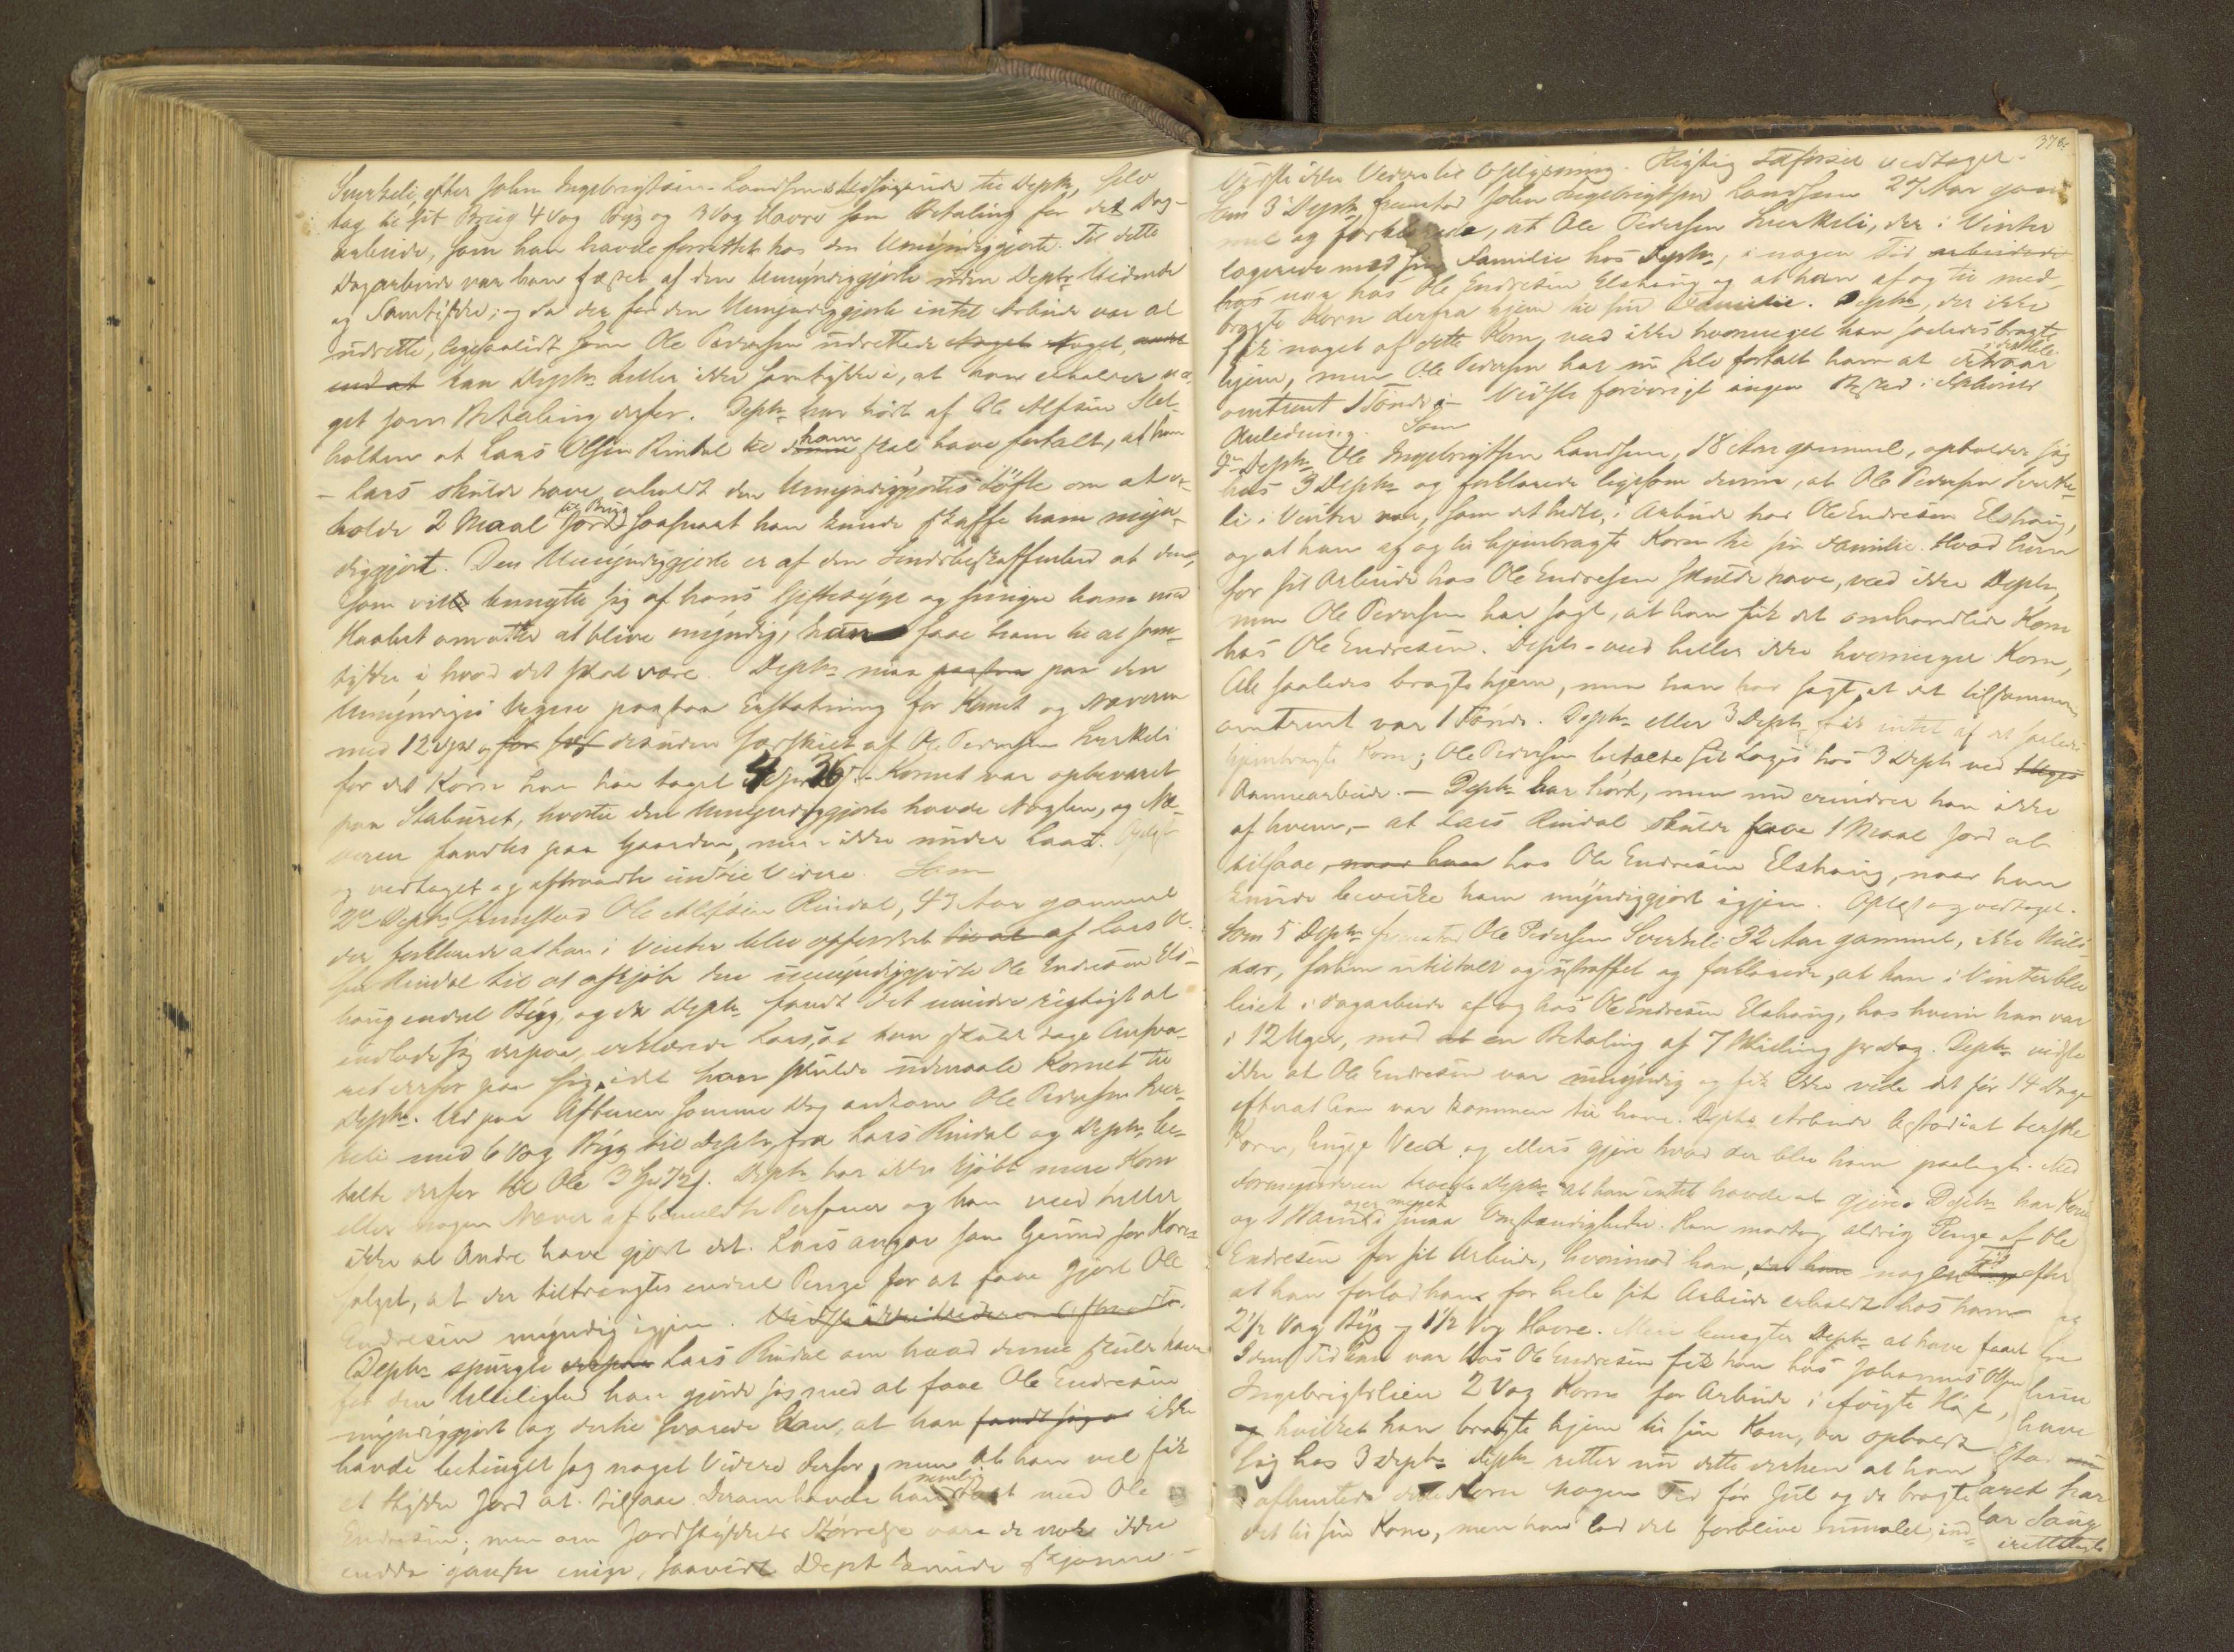 Sverkeli, efter John Ingebrigtsen Landsems Udsigende til Depte, selv
tog til sit Brug 4 Vog Byg og 3 Vog Havre som Betaling for det Dag-
arbeide, som han havde forrettet hos den Umyndiggjorte. Til dette
Dagarbeide var han fæstet af den Umyndiggjorte uden Deptes Vidende
og Samtykke; og da der for den Umyndiggjorte intet Arbeide var at
udrette, ligesaalidt som Ole Pedersen udrettede Noget
end at kan Depte heller ikke samtykke i, at han erholder no-
get som Betaling derfor. Depte har hørt af Ole Alfsen
holten at Lars Olsen Rindal til ham skal have fortalt, at han
- Lars skulde have erholdt den Umyndiggjortes Løfte om at er-
holde 2 Maal Jord til Brug saasnart han kunde skaffe ham myn-
diggjort. Den Umyndiggjorte er af den Sindsbeskaffenhed at den,
som vil benytte sig af hans Giftesyge og smigre ham med
Haabet om atter at blive myndig, kan faae ham til at sam-
tykke i hvad det skal være. Depte maa paa den
Umyndiges Vegne paastaa Erstatning for Kornet og Næveren
med 12 Spd og for desuden særskilt af Ole Pedersen Sverkeli
for det Korn han har taget 4 36 s. Kornet var opbevaret
paa Staburet, hvortil den Umyndiggjorte havde Nøglen, og Næ-
veren fandtes paa Gaarden, men ikke under Laas. Oplæst
og vedtaget og aftraadte indtil Videre. Som
2de Depte fremstod Ole Alfsen Rindal, 43 Aar gammel
der forklarede at han i Vinter blev opfordret til at af Lars Ol-
sen Rindal til at afkjøbe den umyndiggjorte Ole Endresen Els-
haug endeel Byg, og da Depte fandt det mindre rigtigt at
indlade sig derpaa, erklærede Lars, at han skulde tage Ansva-
ret derfor paa sig, idet han skulde udmaale Kornet til
Depte. Ud paa Aftenen samme Dag ankom Ole Pedersen Sver-
keli med 6 Vog Byg til Depte fra Lars Rindal og Depte be-
talte derfor til Ole 3 72 s. Depte har ikke kjøbt mere Korn
eller nogen Næver af bemeldte Personer og han veed heller
ikke at Andre have gjort det. Lars angav som Grund for Korn-
salget, at der tiltrængtes endeel Penge for at faae gjort Ole
Endresen myndig igjen.
Depte spurgte derpaa Lars Rindal om hvad denne skulde have
for den Uleilighed han gjorde sig med at faae Ole Endresen
myndiggjort og dertil svarede Lars, at han fandt sig at ikke
havde betinget sig noget Videre derfor, men at han vel fik
et Stykke Jord at tilsaae. Derom havde han nemlig talt med Ole
Endresen; men om Jordstykkets Størrelse vare de nok ikke
endda ganske enige, saavidt Depte kunde skjønne.-
378.
Vidste ikke Videre til Oplysning. Rigtig Tilførsel vedtaget.
Som 3 Depte fremstod John Ingebrigtsen Landsem 27 Aar gam-
mel og forklarede, at Ole Pedersen Sverkeli, der i Vinter
logerede med sin Familie hos Depte, i nogen Tid arbeidede
hos var hos Ole Endresen Elshaug og at han af og til med-
bragte Korn derfra hjem til sin Familie. Depte, der ikke
fik noget af dette Korn, veed ikke hvormeget han saaledes bragte
hjem, men Ole Pedersen har nu selv fortalt ham at det var
omtrent 1 Tønde. Vidste forøvrigt ingen Besked i Sakens
Anledning. Som
4de Depte Ole Ingebrigtsen Landsem, 18 Aar gammel, opholder sig
hos 3 Depte og forklarede ligesom denne, at Ole Pedersen Sverke-
li i Vinter var, som det hedte, i Arbeide hos Ole Endresen Elshaug,
og at han af og til hjembragte Korn til sin Familie. Hvad han
for sit Arbeide hos Ole Endresen skulde have, veed ikke Depte,
men Ole Pedersen har sagt, at han fik det omhandlede Korn
hos Ole Endresen. Depte veed heller ikke hvormeget Korn,
Ole saaledes bragte hjem, men han har sagt at det tilsammen
omtrent var 1 Tønde. Depte eller 3 Depte fik intet af det saaledes
hjembragte Korn; Ole Pedersen betalte sit Logis hos 3 Depte ved
Aannearbeide. - Depte har hørt, men nu erindrer han ikke
af hvem, - at Lars Rindal skulde faae 1 Maal Jord at
tilsaae naar han hos Ole Endresen Elshaug, naar han
kunde bevirke ham myndiggjort igjen. Oplæst og vedtaget.
Som 5 Depte fremstod Ole Pedersen Sverkeli 32 Aar gammel, ikke Mili-
tær, forhen utiltalt og ustraffet og forklarede, at han i Vinter blev
leiet i Dagarbeide af og hos Ole Endresen Elshaug, hos hvem han var
i 12 Uger, mod at en Betaling af 7 Skilling pr Dag. Depte vidste
ikke at Ole Endresen var umyndig og fik ikke vide det før 14 Dage
efterat han var kommen til ham. Deptes Arbeide bestod i at terske
Korn, hugge Ved og ellers gjøre hvad der blev ham paalagt. Med
Formynderen havde Depte at han intet havde at gjøre. Depte har Kone
og 1 Barn i smaa Omstændigheder. Han modtog aldrig Penge af Ole
Endresen for sit Arbeide, hvorimod han, da han nogen Tid efter
at han forlod ham for hele sit Arbeide erholdt hos ham
2½ Vog Byg og 1½ Vog Havre. Mere benegter Depte at have faaet
I den Tid han var hos Ole Endresen fik han hos Johannes Olsen
Ingebrigtslien 2 Vog Korn for Arbeide i afvigte Høst,
og hvilket han bragte hjem til sin Kone, der opholdt
sig hos 3 Depte. Depte retter nu dette derhen at han
afhentede dette Korn nogen Tid før Jul og da bragte
det til sin Kone, men han lod det forblive umalet, ind-